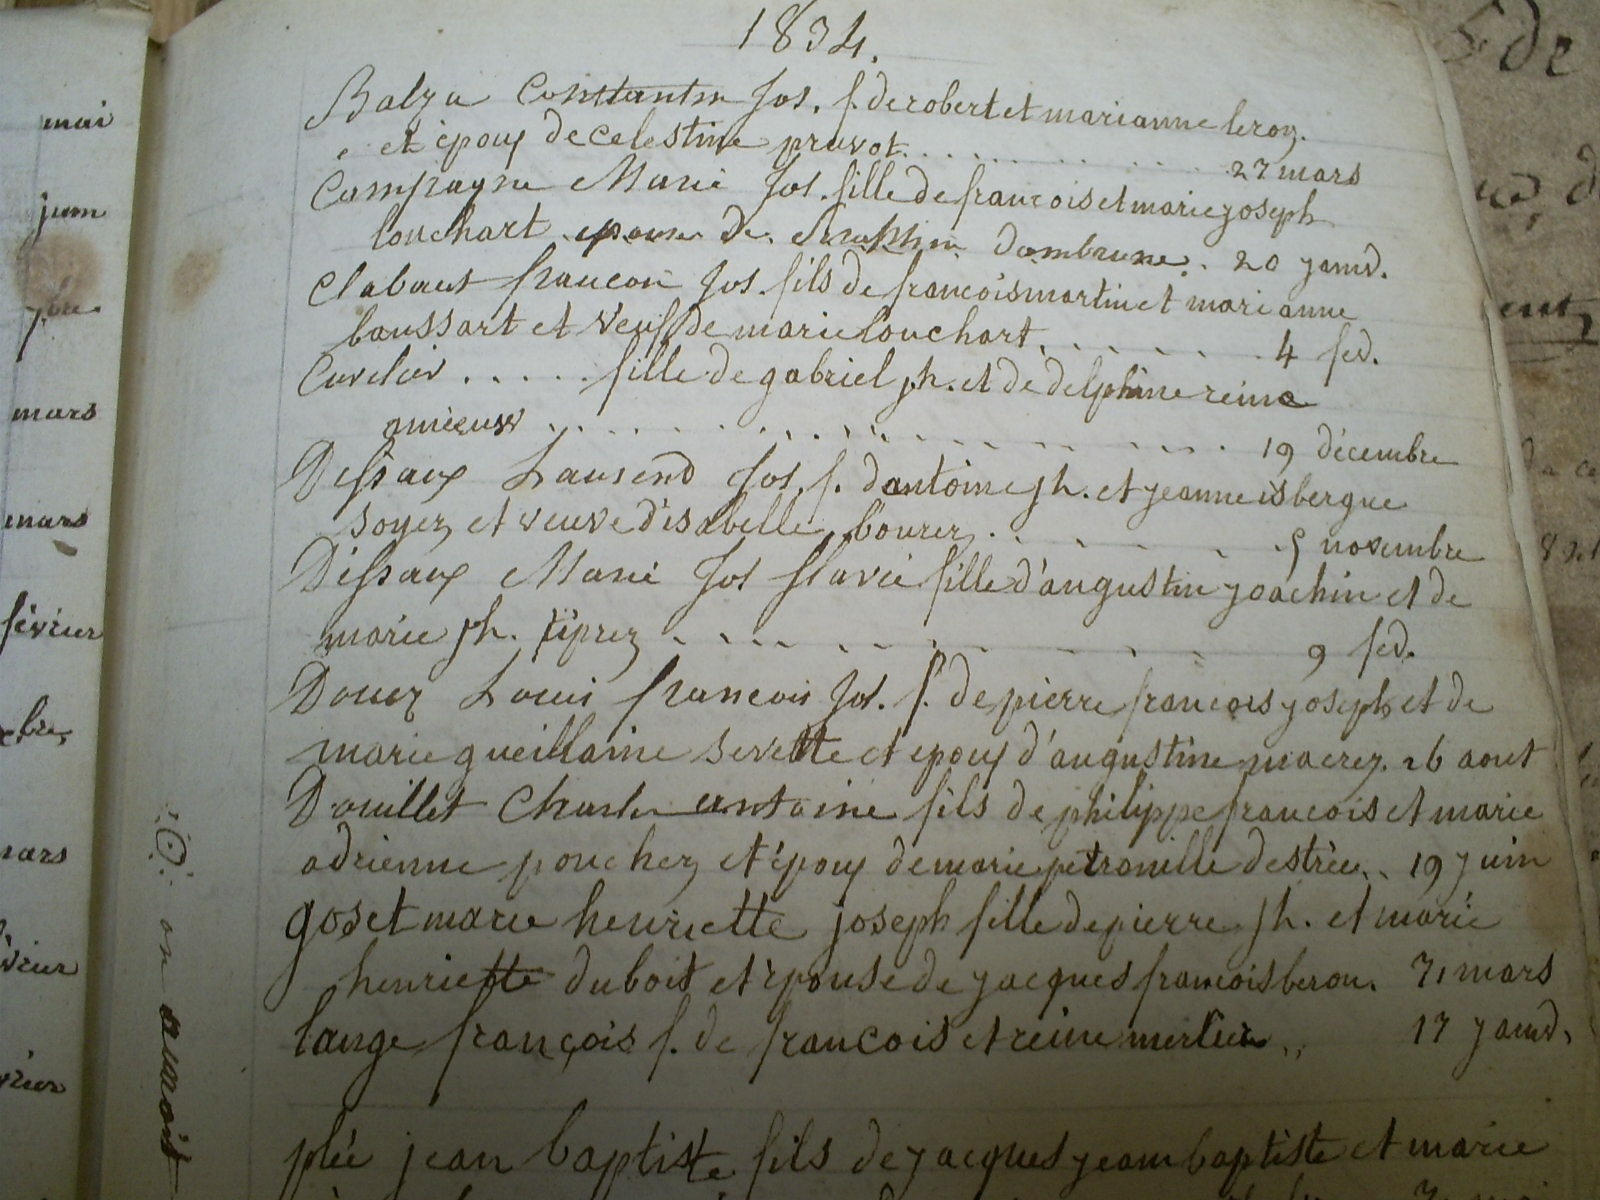 1834.
Balza Constantin Jos. f. de robert et marianne leroy.
et époux de celestine pruvot. 27 mars
Campagne Marie Jos. fille de francois et marie joseph
louchart epouse de Seraphin dambrune. 20 janv.
Clabaut francois Jos. fils de francois martin et marianne
baussart et veuf de marie louchart. 4 fev.
Cuvelier ..... fille de gabriel jh. et de delphine reine
amieux 19 décembre
Dessaux Jos. f. d'antoine jh. et jeanne isbergue
soyez et veuve d'isabelle bourez. 5 novembre
Dessaux Marie Jos flavie fille d'augustin joachin et de
marie jh. 9 fev.
Douez Louis francois Jos. f. de pierre francois joseph et de
marie gueillaine sevette et epoux d'augustine macrez. 26 aout
Douillet Charles antoine fils de philippe francois et marie
adrienne pouchez et époux de marie petronille destrée.. 19 juin
goset marie henriette joseph fille de pierre jh. et marie
henriette dubois et épouse de jacques francois berou. 31 mars
lange françois f. de francois et reine merlier.. 17 janv.
plée jean baptiste fils de jacques jean baptiste et marie
mai
juin
7bre
mars
mars
février
bre
mars
vrier
vrier